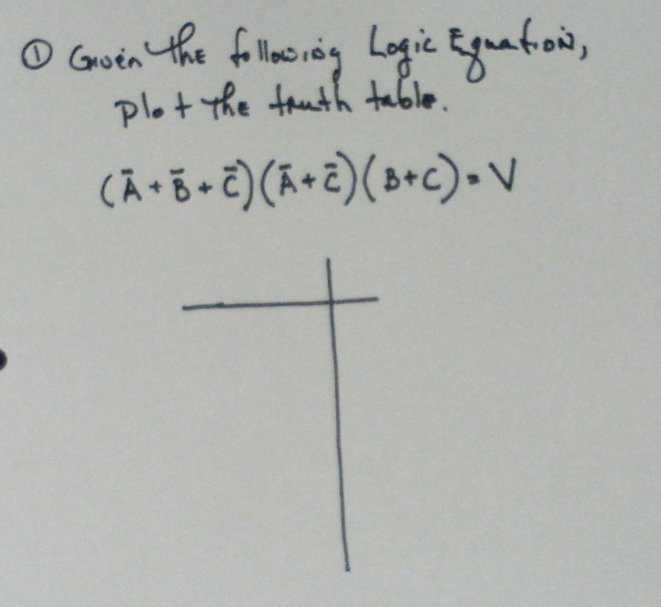 ① Given the following Logic Equation,
plot the truth table.
(Ā + B̄ + C̄)(Ā + C̄)(B + C) = V